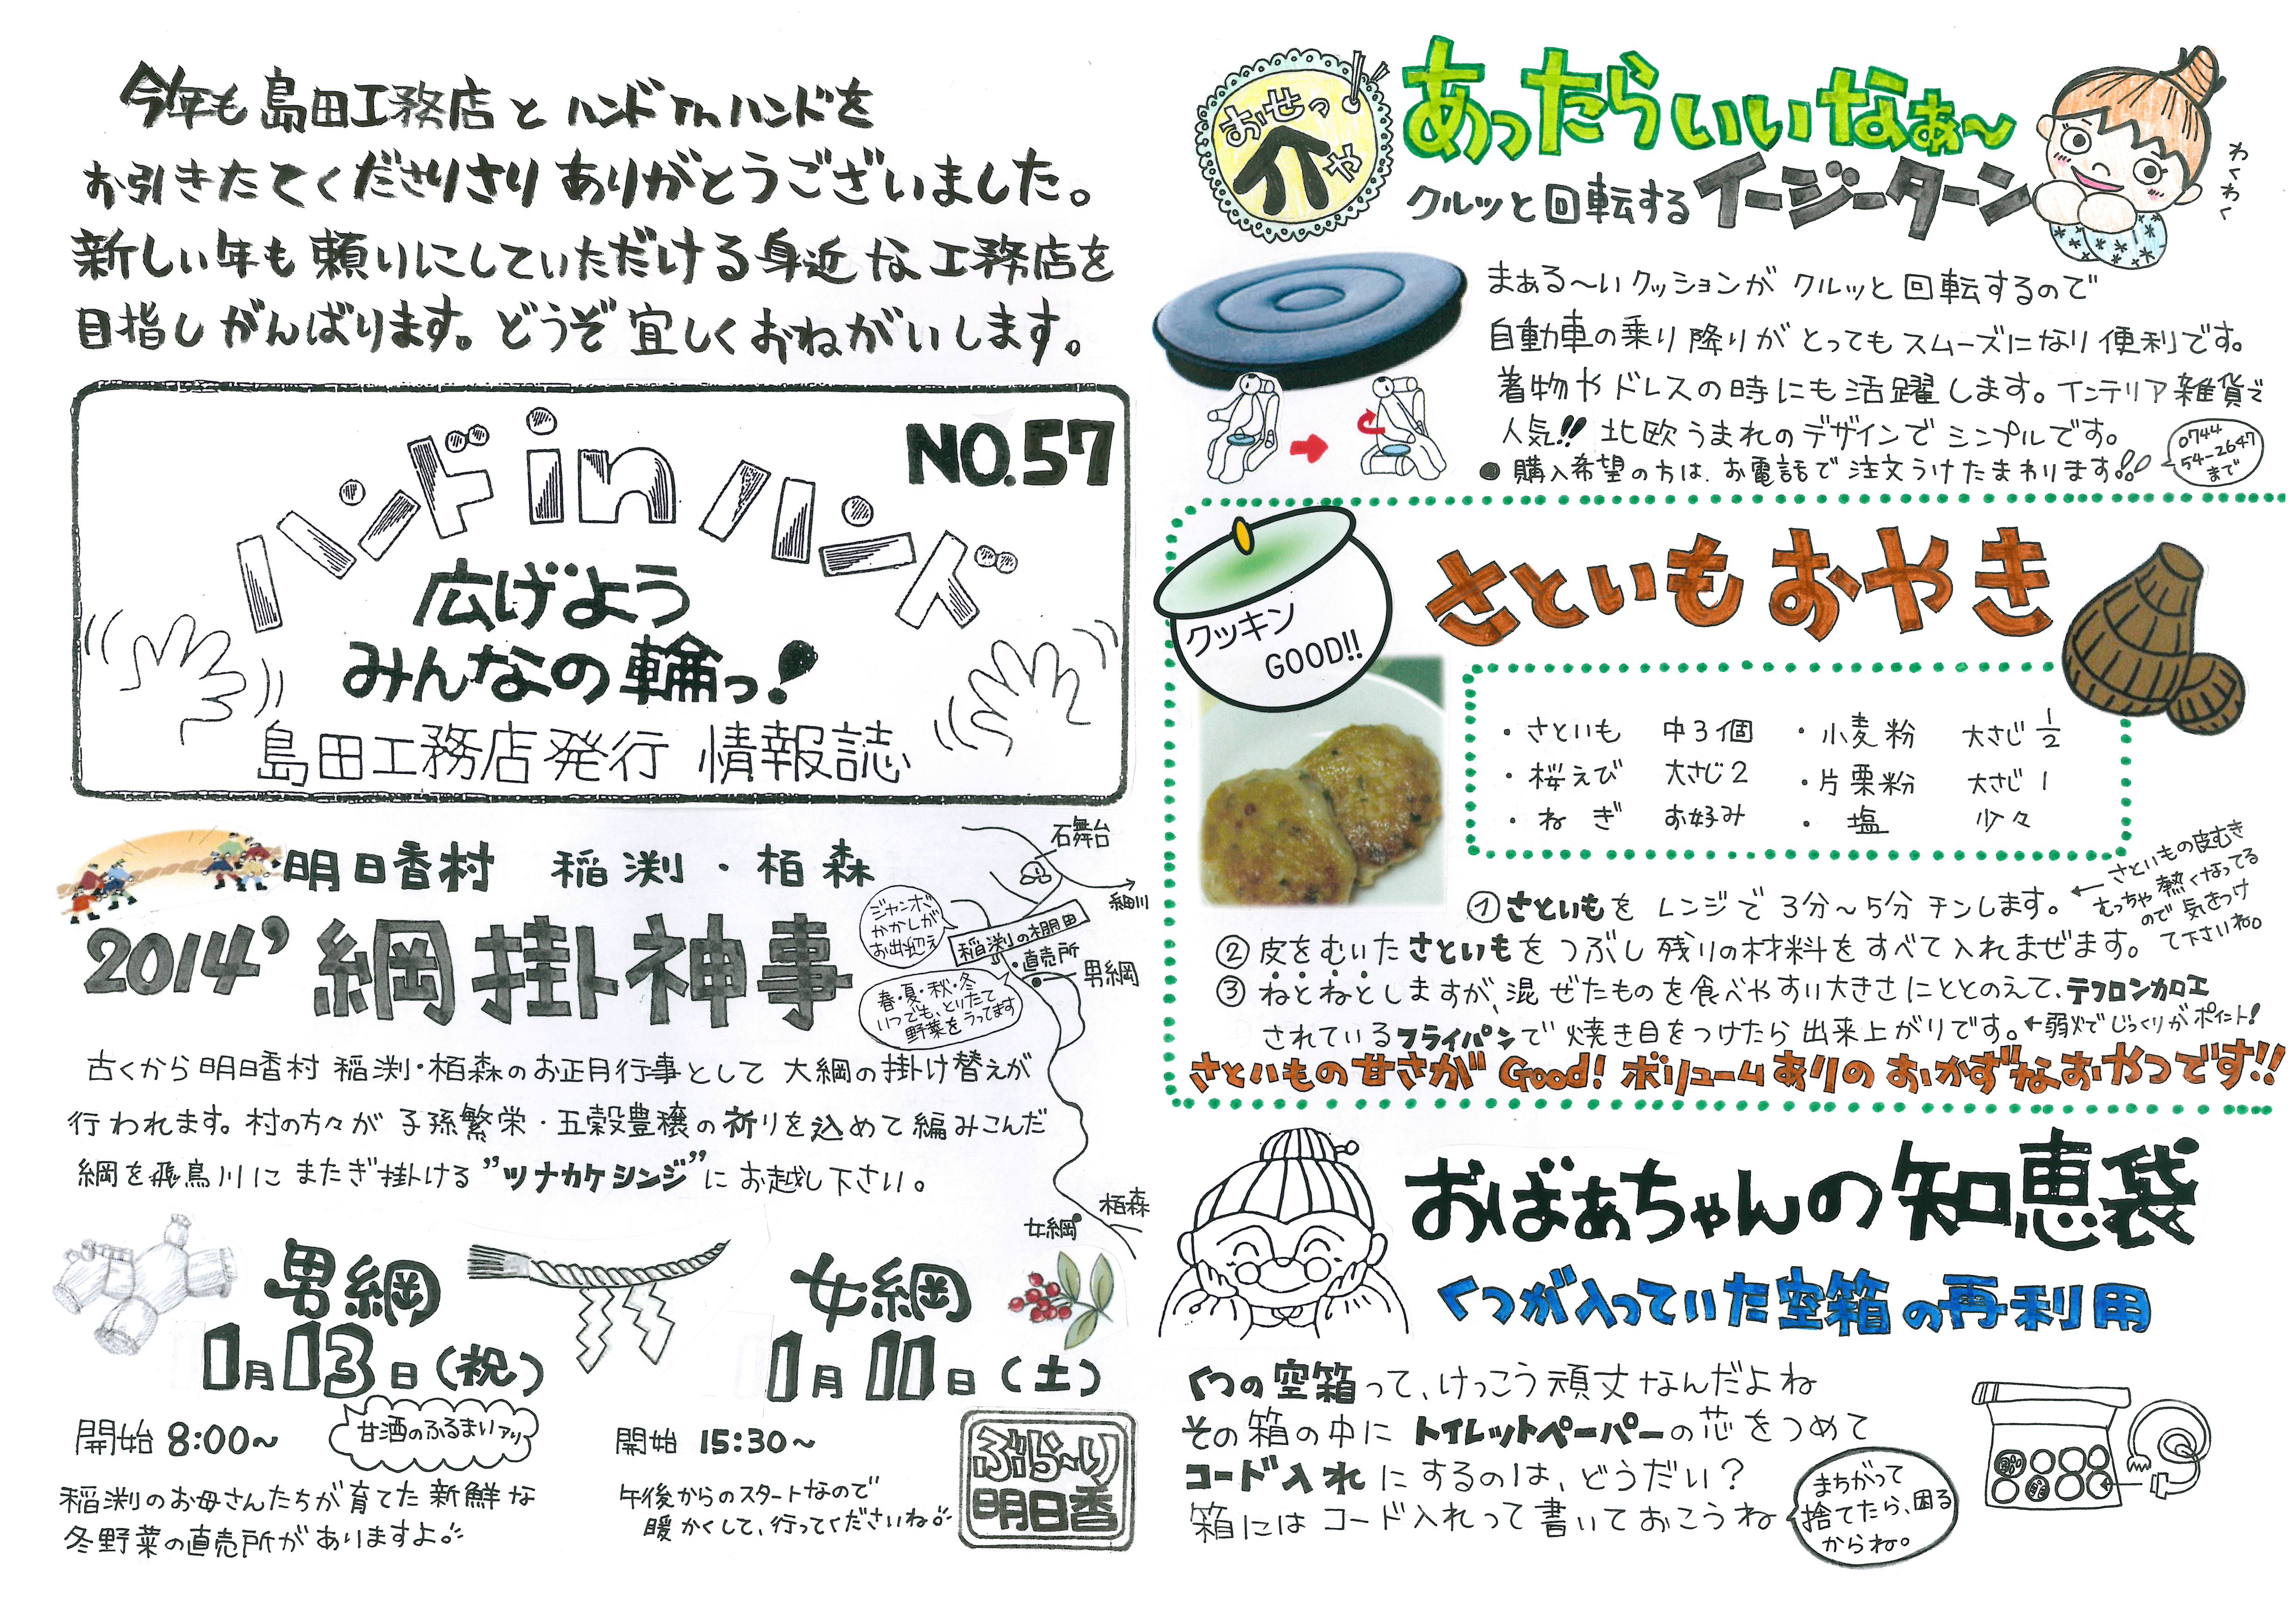 今年も島田工務店とハンドinハンドを
お引きたてくださりさりありがとうございました。
新しい年も頼りにしていただける身近な工務店を
目指しがんばります。どうぞ宜しくおねがいします。
NO.57
ハンドinハンド
広げよう
みんなの輪っ!
島田工務店発行 情報誌
明日香村 稲渕・栢森
2014’綱掛神事
石舞台
細川
ジャンボ
かかしが
お出迎え
稲渕の棚田
・直売所
男綱
春・夏・秋・冬
いつでも、とりたて
野菜をうってます
栢森
女綱
古くから明日香村 稲渕・栢森のお正月行事として 大綱の掛け替えが
行われます。村の方々が 子孫繁栄・五穀豊穣の祈りを込めて編みこんだ
綱を飛鳥川に またぎ掛ける ”ツナカケシンジ”に お越し下さい。
男綱
1月13日(祝)
開始 8:00~
甘酒のふるまいアリ
稲渕のお母さんたちが育てた新鮮な
冬野菜の直売所がありますよ!!
女綱
1月11日(土)
開始 15:30~
午後からのスタートなので
暖かくして、行ってくださいね!!
ぶら~り
明日香
おせっ
介や
あったらいいなぁ~
クルッと回転するイージーターン
わくわく
まぁる~いクッションが クルッと回転するので
自動車の乗り降りが とってもスムーズになり便利です。
着物やドレスの時にも活躍します。インテリア雑貨で
人気!! 北欧うまれのデザインでシンプルです。
●購入希望の方は、お電話で注文うけたまわります!!
0744
54-2647
まで
クッキン
GOOD!!
さといもおやき
・さといも 中3個 ・小麦粉 大さじ1/2
・桜えび 大さじ2 ・片栗粉 大さじ1
・ねぎ お好み ・塩 少々
①さといもを レンジで 3分~5分 チンします。
←さといもの皮むき
むっちゃ熱くなってる
ので気をつけ
て下さいね。
②皮をむいたさといもをつぶし残りの材料をすべて入れまぜます。
③ねとねとしますが、混ぜたものを食べやすい大きさにととのえて、テフロンカロエ
されているフライパンで焼き目をつけたら出来上がりです。←弱火でじっくりがポイント!
さといもの甘さがGood! ボリュームありのおかずなおやつです!!
おばぁちゃんの知恵袋
くつが入っていた空箱の再利用
くつの空箱って、けっこう頑丈なんだよね
その箱の中に トイレットペーパーの芯をつめて
コード入れにするのは、どうだい?
箱には コード入れって書いておこうね
まちがって
捨てたら、困る
からね。